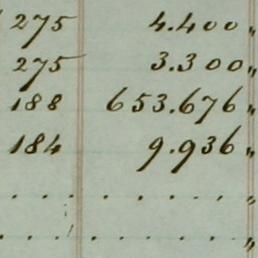 275 4.400 "
275 3.300 "
188 653.676 "
184 9.936 "
. . . . . . . "
. . . . . . . "